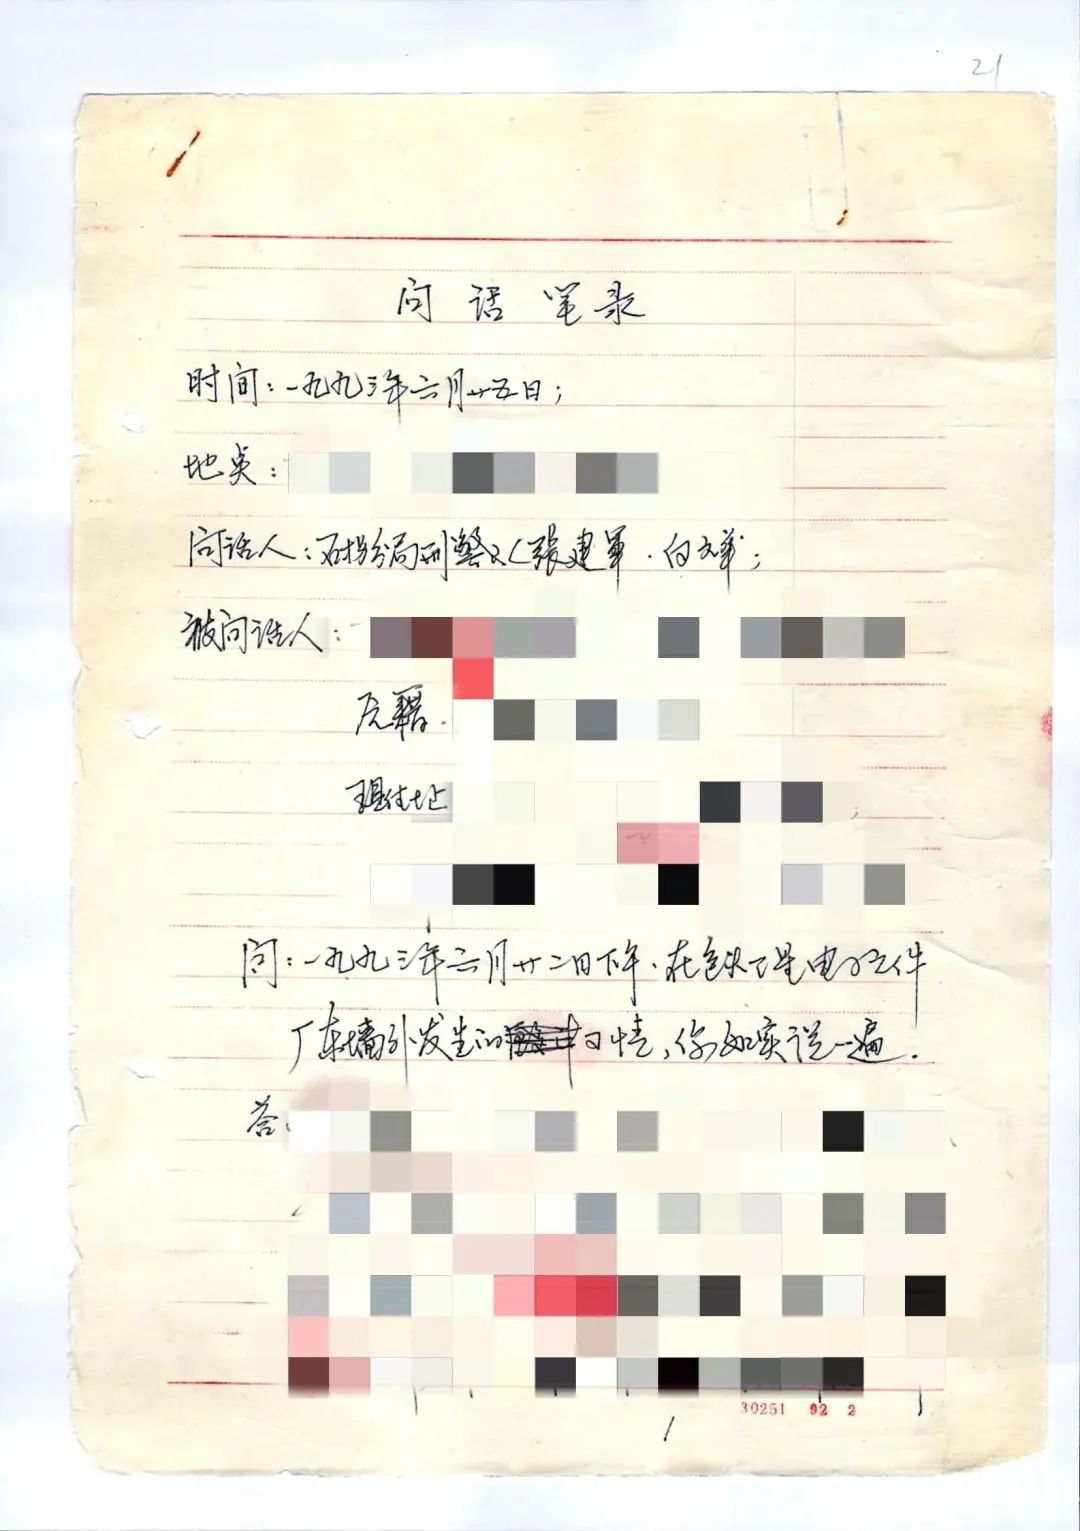 21
问话笔录
时间:一九九三年六月廿五日;
地点:
问话人:石拐分局刑警队张建军.白文举;
被问话人:
原籍.
现住址
问:一九九三年六月廿二日下午.在包头卫星电子元件
厂东墙外发生的事情,你如实说一遍.
答:
30251 92 2